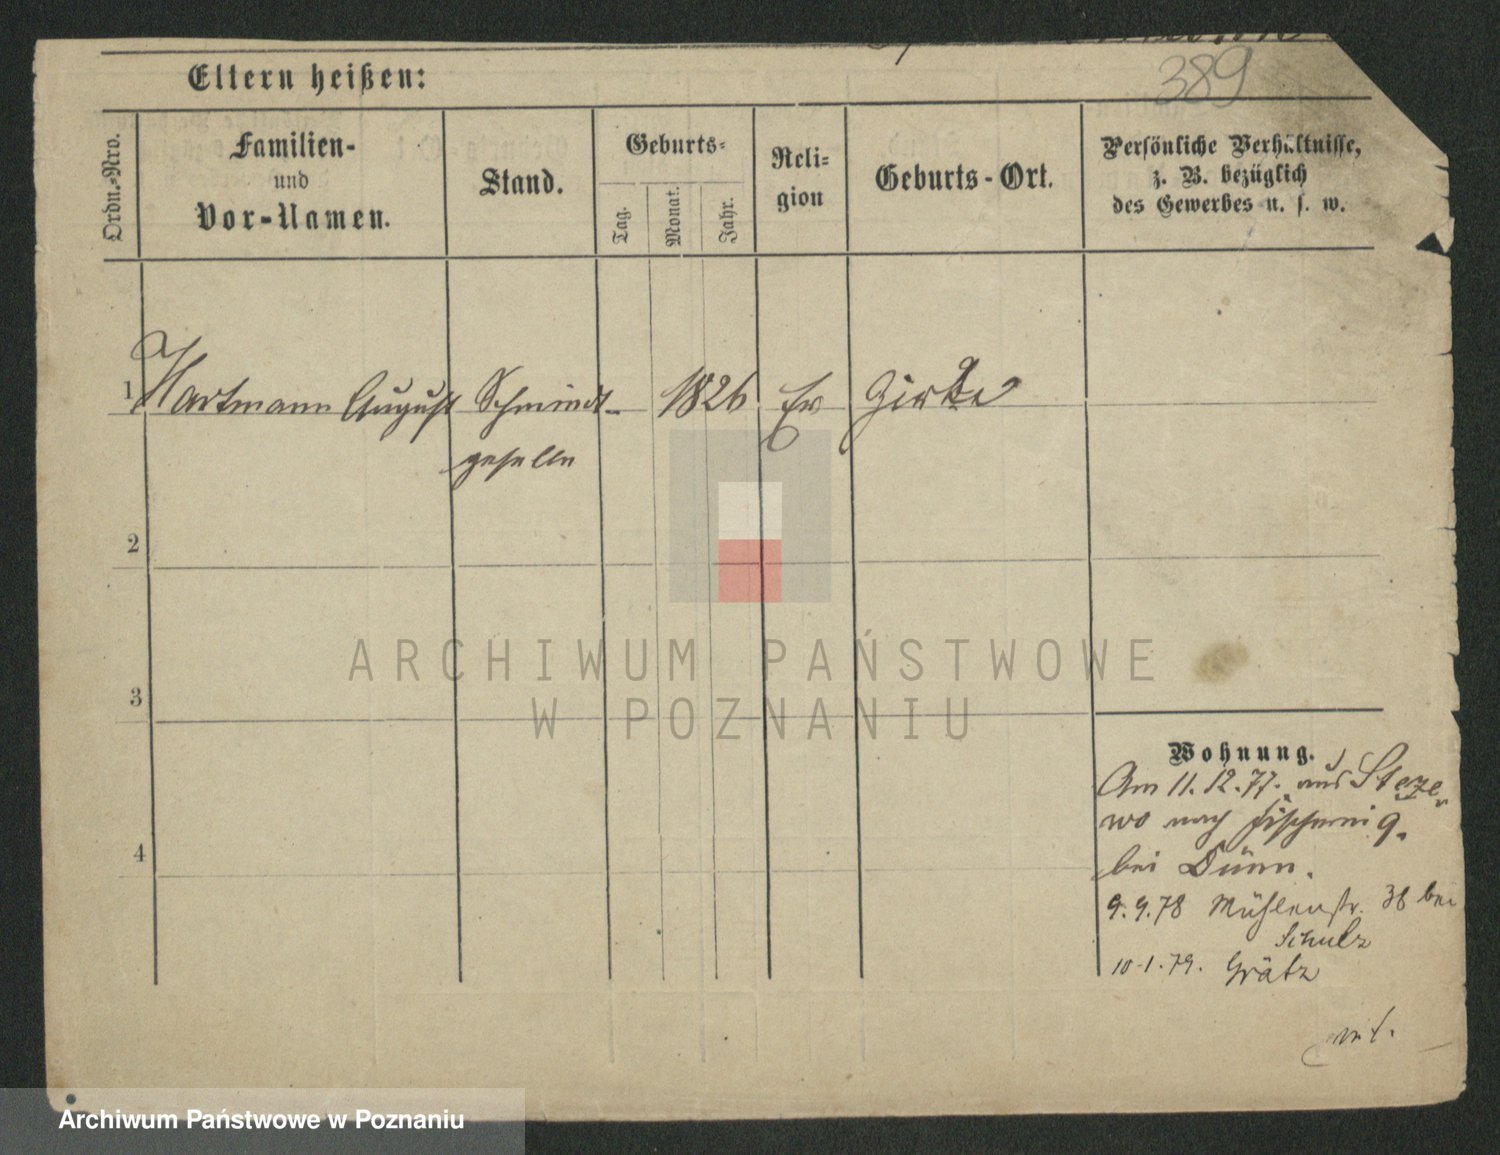 389
Eltern heißen:
Ordn.-Nro.
Familien-
und
Vor-Namen.
Stand.
Geburts-
Tag.
Monat.
Jahr.
Reli-
gion
Geburts-Ort.
Persönliche Verhältnisse,
z. B. bezüglich
des Gewerbes u. s. w.
1 Hartmann August Schmied- 1826 Ev
geselle
2
3
4
Wohnung.
Am 11.12.77. aus
wo nach Fischerei 9.
bei
9.9.78 Mühlenstr. 38 bei
Schulz
10.1.79. Grätz
ARCHIWUM PAŃSTWOWE
W POZNANIU
Archiwum Państwowe w Poznaniu